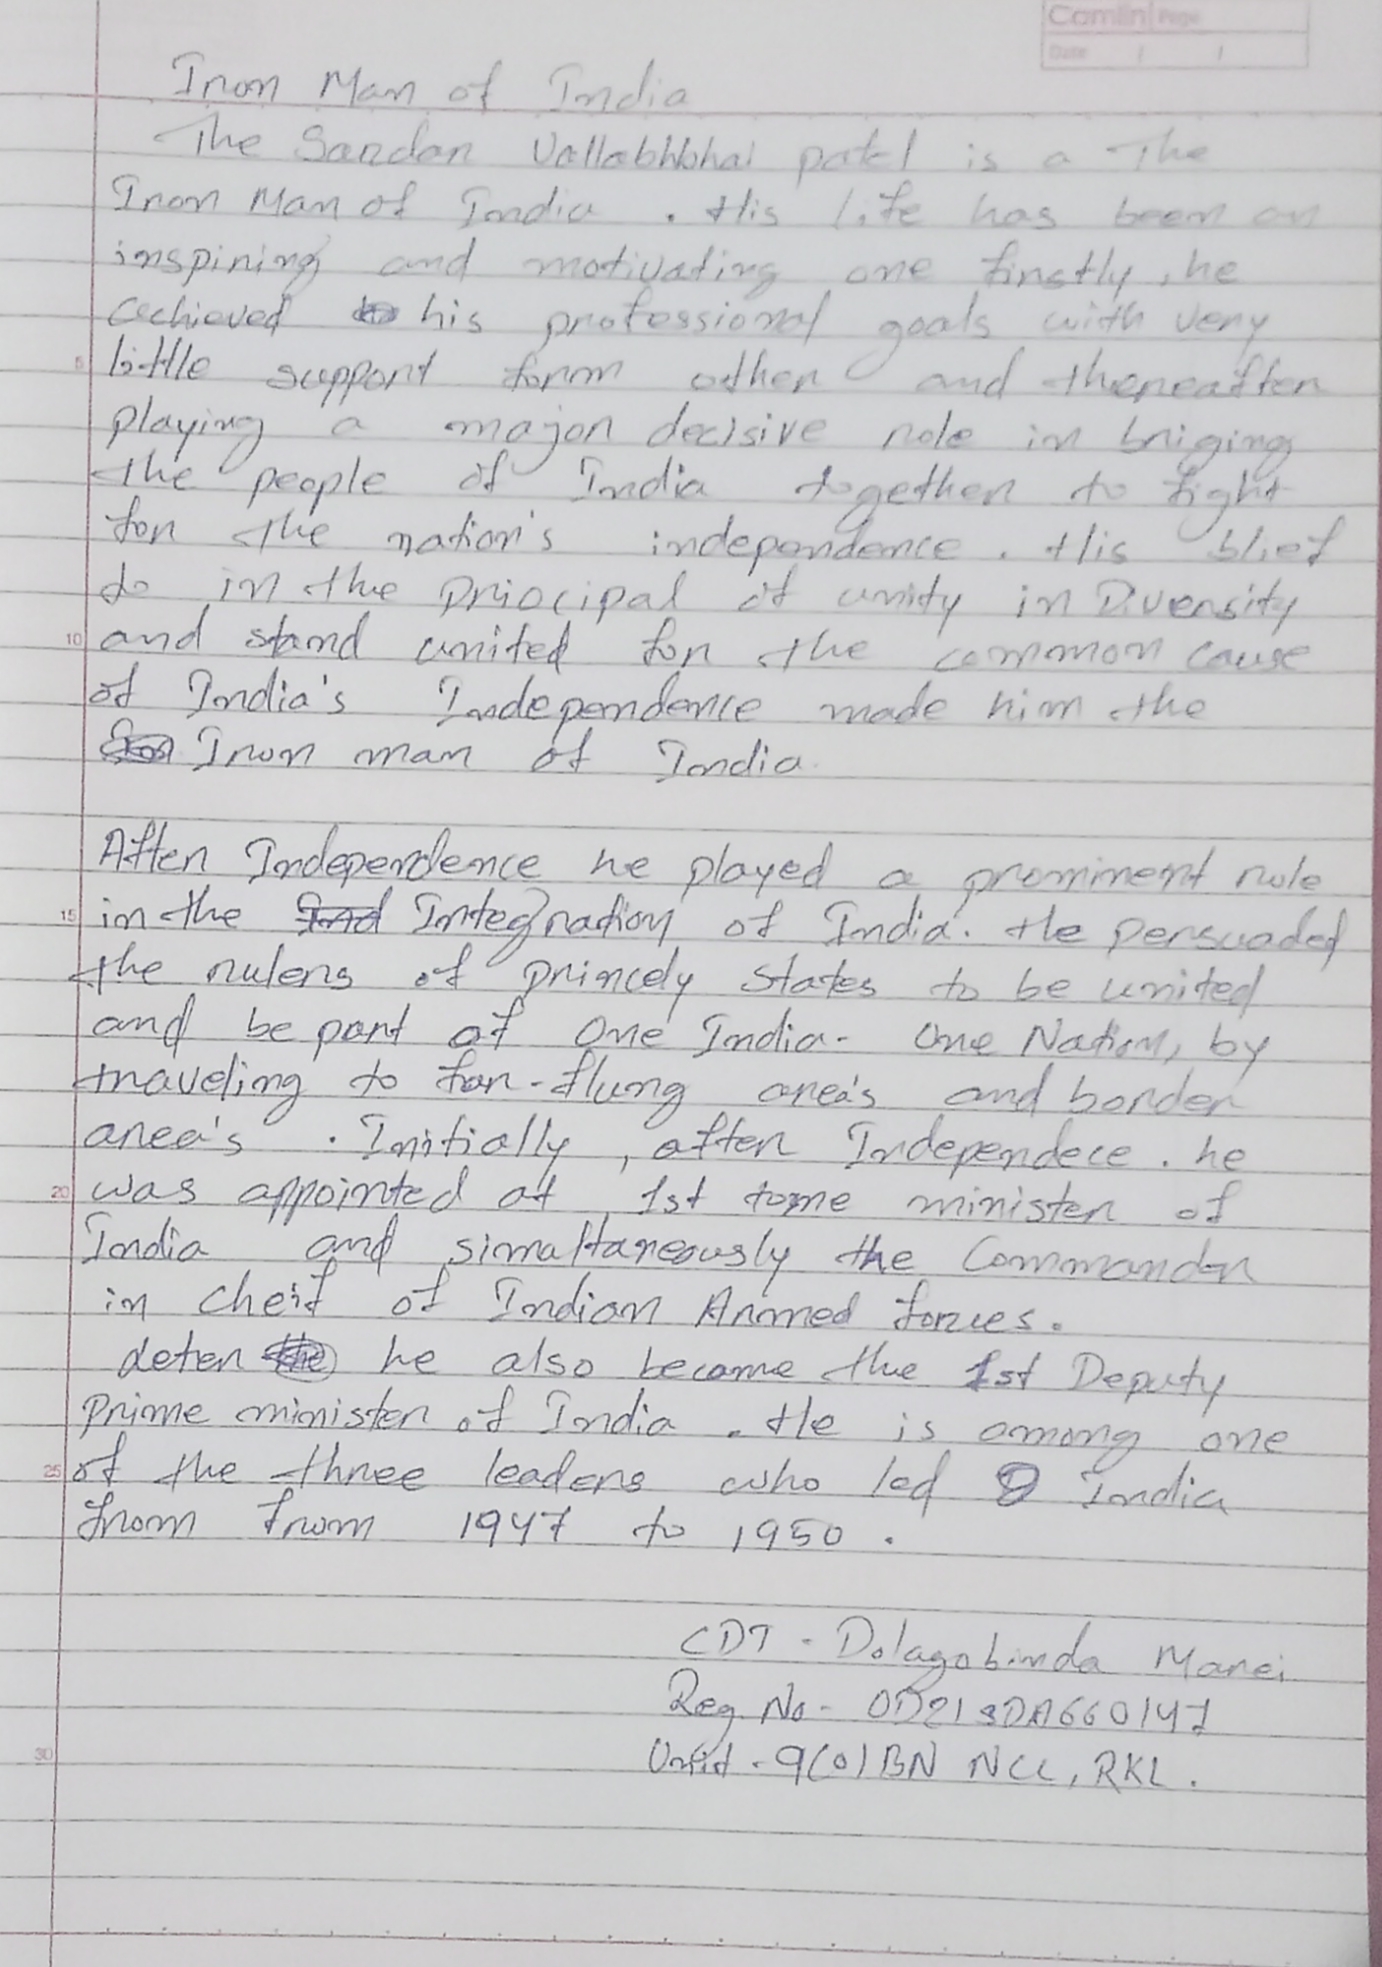 Camlin Page
Date / /
Iron Man of India
The Sardar Vallabhbhai patel is a The
Iron Man of India . His life has been an
inspiring and motivating one firstly, he
achieved his professional goals with very
5 little support form other and thereafter
playing a major decisive role in briging
the people of India together to fight
for the nation's independence . His blief
to in the priocipal of unity in Diversity
10 and stand united for the common cause
of India's Independence made him the
Iron man of India.
After Independence he played a prominent role
15 in the Integration of India. He persuaded
the rulers of princely states to be united
and be part of One India - One Nation, by
traveling to far-flung area's and border
area's . Initially, after Independece . he
20 was appointed at 1st tome minister of
India and simaltareously the Commander
in cheif of Indian Armed forces.
deter he also became the 1st Deputy
prime minister of India . He is among one
25 of the three leaders who led India
from from 1947 to 1950 .
CDT - Dolagobinda Marei
Reg. No - OD21SDA660147
Unit - 9(O) BN NCC, RKL .
30